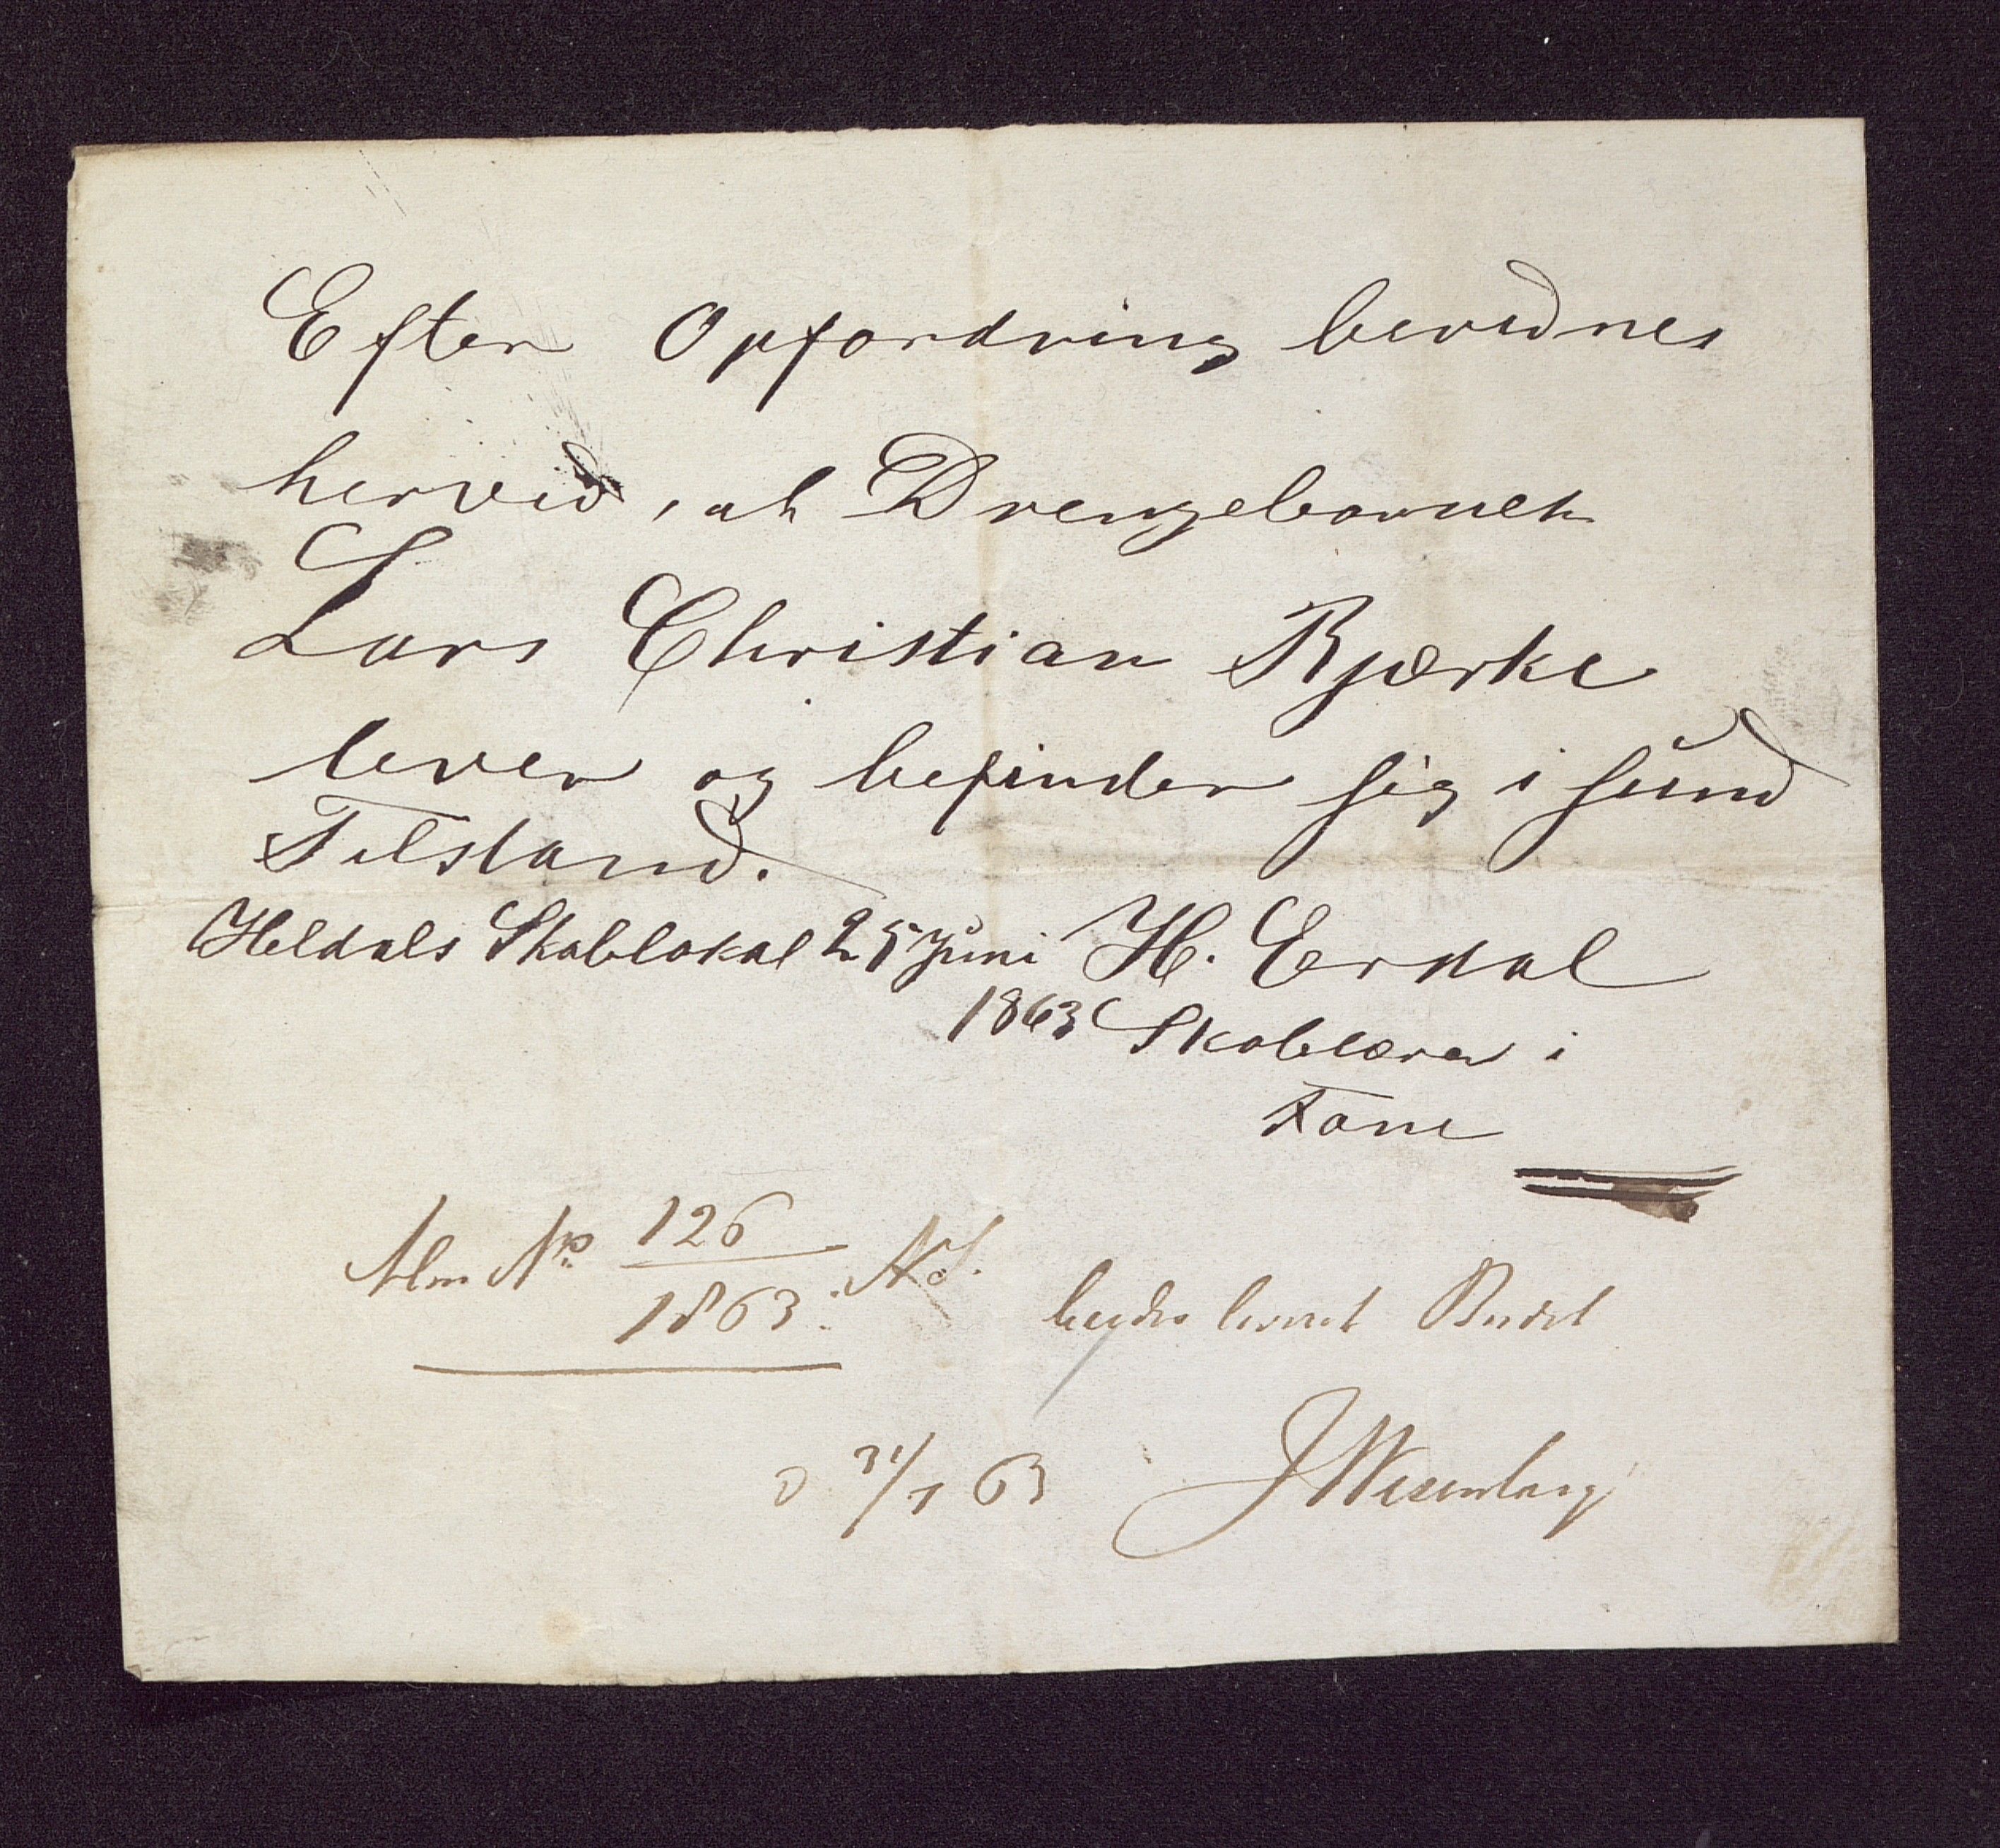 Efter Opfordring bevidnes
herved, at Drengebarnet
Lars Christian Bjærke
lever og befinder sig i sund
Tilstand.
Heldals Skolelokal 25 Juni H. Erdal
1863 Skolelærer i
Fane
Alm No 126
1863.
leveret Budet
31/7 63 JWesenberg